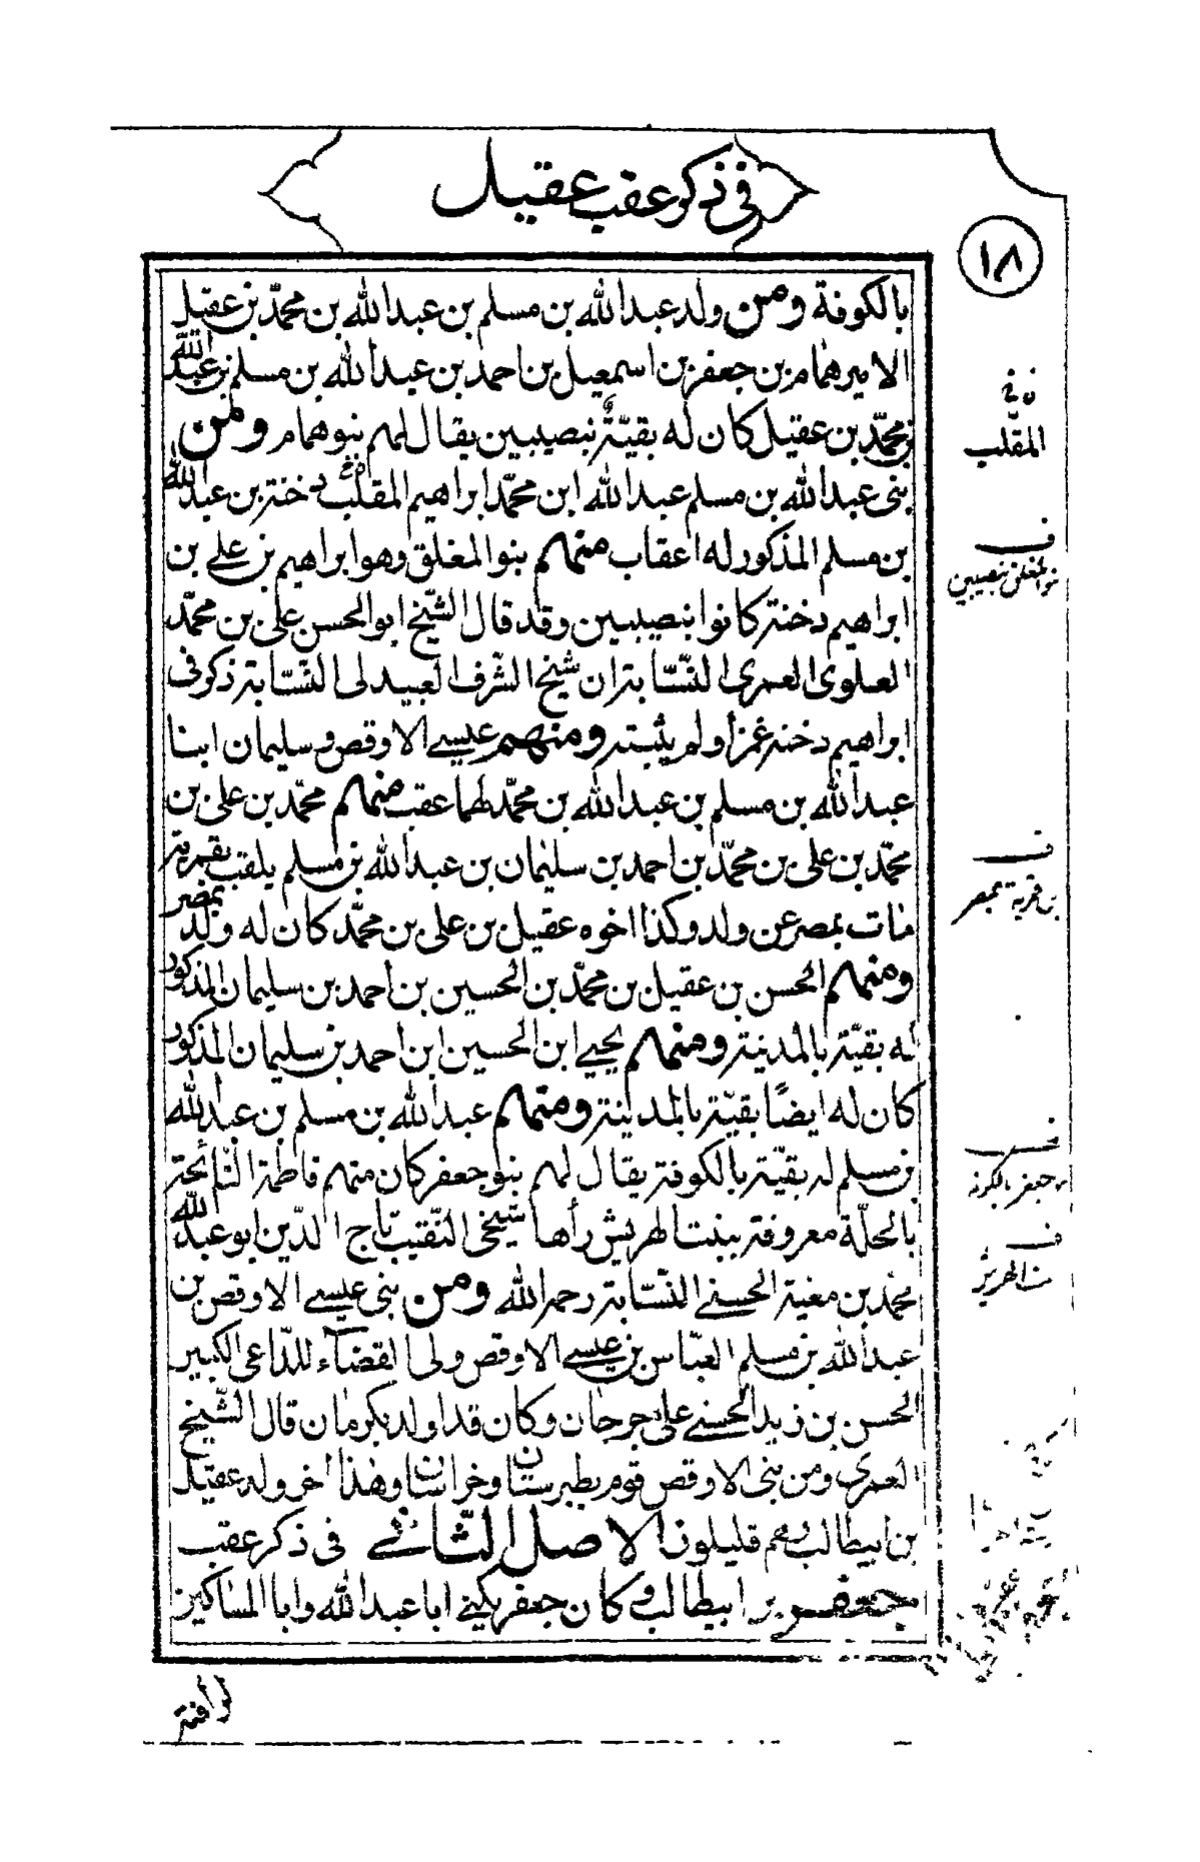 فى ذكر عقب عقيل
١٨
بالكوفة ومن ولد عبدالله بن مسلم بن عبدالله بن محمّد بن عقيل
الامير همام بن جعفر بن اسمعيل بن احمد بن عبدالله بن مسلم بن عبدالله
بن محمّد بن عقيل كان له بقيّةٌ بنصيبين يقال لهم بنو همام ومن
بنى عبدالله بن مسلم عبدالله ابن محمّد ابراهيم المقلب دخنة بن عبدالله
بن مسلم المذكور له اعقاب منهم بنو المغلق وهو ابراهيم بن على بن
ابراهيم دخنة كانوا بنصيبين وقد قال الشّيخ ابو الحسن على بن محمّد
العلوى العمرى النّسّابة ان شيخ الشّرف العبيدلى النّسّابة ذكر فى
ابراهيم دخنة غمزا ولم يثبته ومنهم عيسى الاوقص وسليمان ابنا
عبدالله بن مسلم بن عبدالله بن محمّد لهما عقب منهم محمّد بن على بن
محمّد بن على بن محمّد بن احمد بن سليمان بن عبدالله بن مسلم يلقب بقربة
مات بمصر عن ولد وكذا اخوه عقيل بن على بن محمّد كان له ولد بمصر
ومنهم الحسن بن عقيل بن محمّد بن الحسين بن احمد بن سليمان المذكور
له بقيّة بالمدينة ومنهم يحيى ابن الحسين ابن احمد بن سليمان المذكور
كان له ايضًا بقيّة بالمدينة ومنهم عبدالله بن مسلم بن عبدالله
بن مسلم له بقيّة بالكوفة يقال لهم بنو جعفر كان منهم فاطمة النّائحة
بالحلّة معروفة ببنت الهريش رأها شيخى النّقيب تاج الدّين ابو عبدالله
محمّد بن معية الحسنى النّسّابة رحمه الله ومن بنى عيسى الاوقص بن
عبدالله بن مسلم العبّاس بن عيسى الاوقص ولى القضاء للدّاعى الكبير
الحسن بن زيد الحسنى على جرجان وكان قد اولد بكرمان قال الشّيخ
العمرى ومن بنى الاوقص قوم بطبرستان وخراسان وهذا اخر ولد عقيل
بن ابيطالب وهم قليلون الاصل الثّانى فى ذكر عقب
جعفر بن ابيطالب وكان جعفر يكنى ابا عبدالله وابا المساكين
المقلّب
ف
بنو المغلق بنصيبين
ف
بن قربة بمصر
ف
بن جعفر بالكوفه
ف
لرأفته